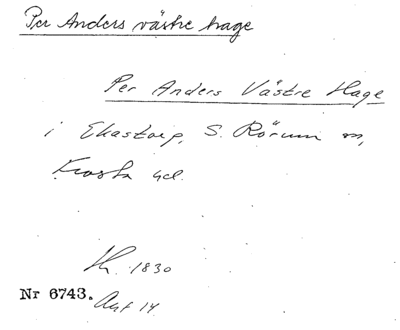 Per Anders västre hage
Per Anders Västre Hage
i Ekastorp, S. Rörum sn,
Frosta hd.
1830
Nr 6743.
Akt 14